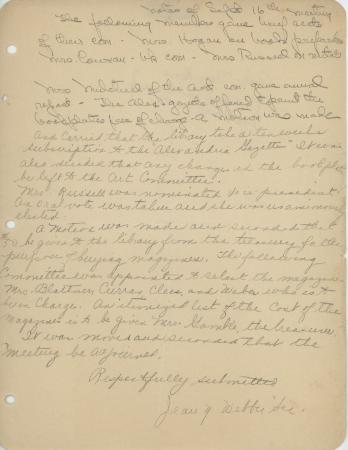 notes of Sept 16th meeting
The following members gave brief acts
of their com - Mrs. Hogan on
Mrs. Cowan - com - Mrs Russell on
Mrs. Mitchell of the Art com. gave annual
report - The Alex. Gazette offered to print the
bookplates free of charge - A motion was made
and carried that the library take a ten weeks
subscription to the Alexandria Gazette. It was
also decided that any changes in the bookplate
be left to the Art Committee.
Mrs. Russell was nominated Vice president.
An oral vote was taken and she was unanimously
elected.
A Motion was made and seconded that
be given to the library from the treasury for the
purpose of buying magazines. The following
Committee was appointed to select the magazines
Mrs. Blattner, Curran, Clees, and Weber who is to
be in Charge. An itemized list of the Cost of the
magazines is to be given Mrs. Gamble, the treasurer
It was moved and seconded that the
Meeting be adjourned.
Respectfully submitted
Jean Webb Sec.